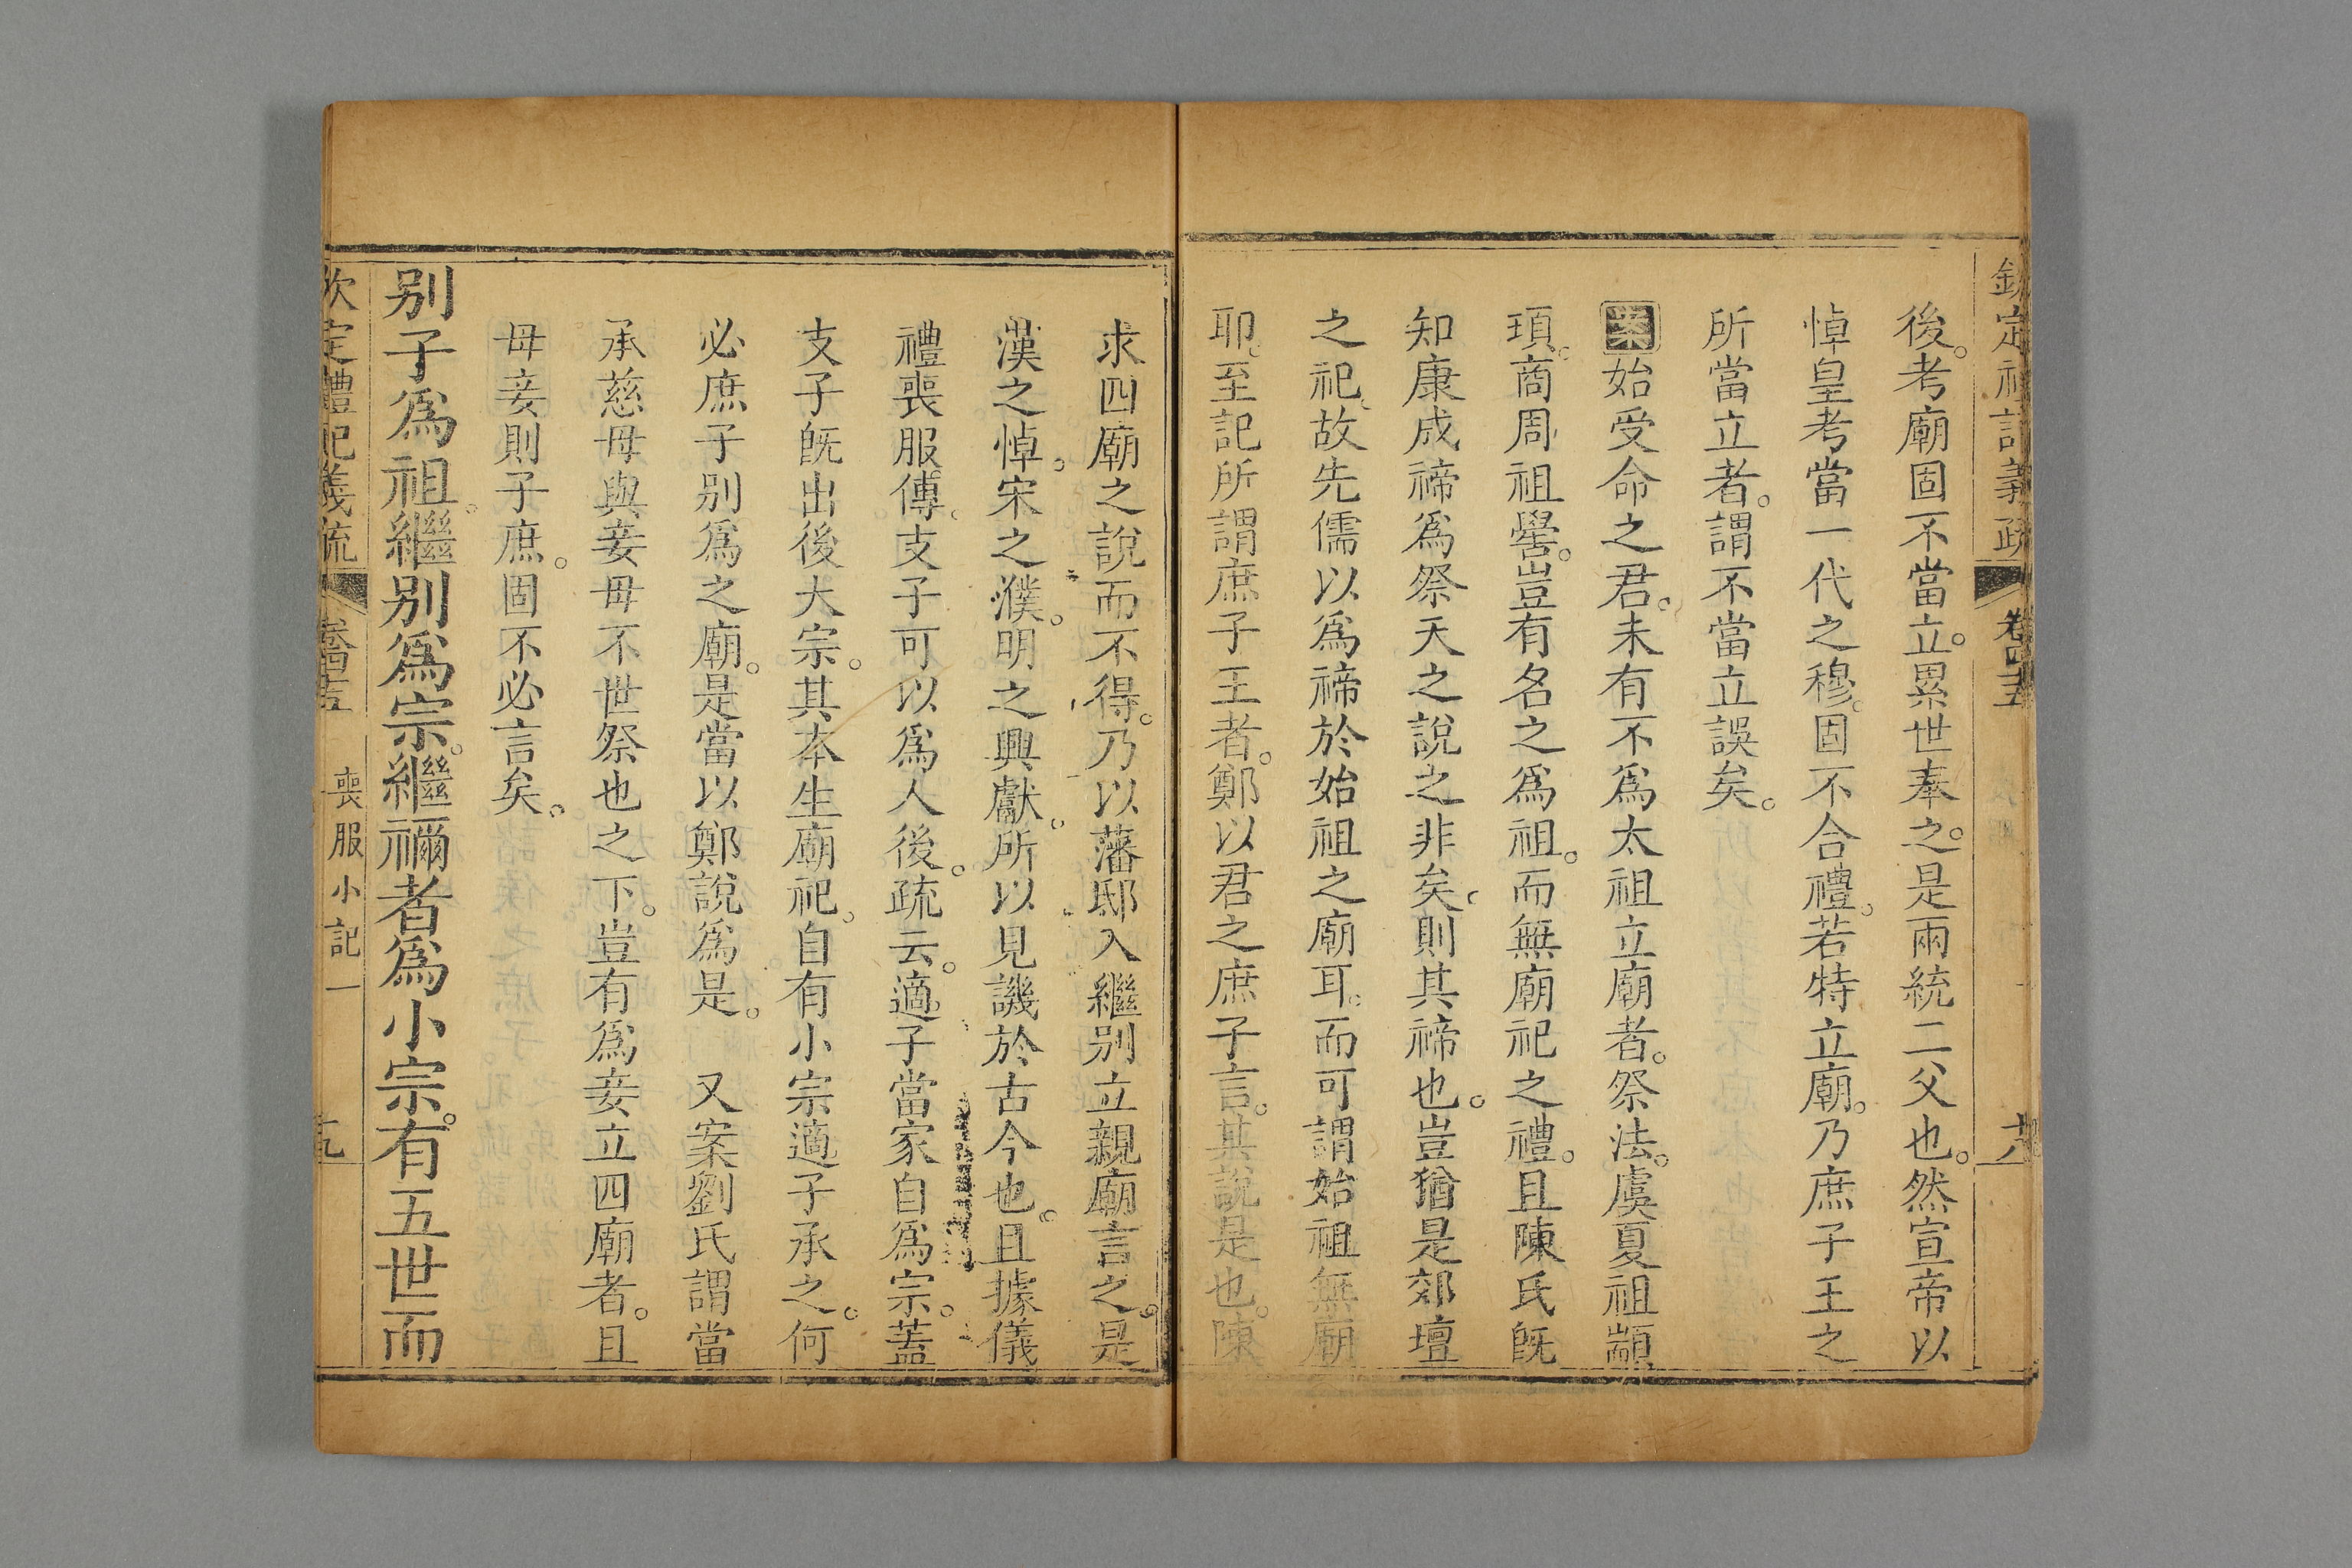 欽定禮記義疏 卷四十五 十八
後。考廟固不當立。累世奉之。是兩統二父也。然宣帝以
悼皇考當一代之穆。固不合禮。若特立廟。乃庶子王之
所當立者。謂不當立誤矣。
案始受命之君。未有不爲太祖立廟者。祭法。虞夏祖顓
頊。商周祖嚳。豈有名之爲祖。而無廟祀之禮。且陳氏旣
知康成禘爲祭天之說之非矣。則其禘也。豈猶是郊壇
之祀。故先儒以爲禘於始祖之廟耳。而可謂始祖無廟
耶。至記所謂庶子王者。鄭以君之庶子言。其說是也。陳
求四廟之說而不得。乃以藩邸入繼别立親廟言之。是
漢之悼。宋之濮。明之興獻。所以見譏於古今也。且據儀
禮喪服傳。支子可以爲人後。疏云。適子當家自爲宗。蓋
支子旣出後大宗。其本生廟祀。自有小宗適子承之。何
必庶子别爲之廟。是當以鄭說爲是。 又案劉氏謂當
承慈母與妾母不世祭也之下。豈有爲妾立四廟者。且
母妾則子庶。固不必言矣。
别子爲祖。繼别爲宗。繼禰者爲小宗。有五世而
欽定禮記義疏 卷四十五 喪服小記一 十九